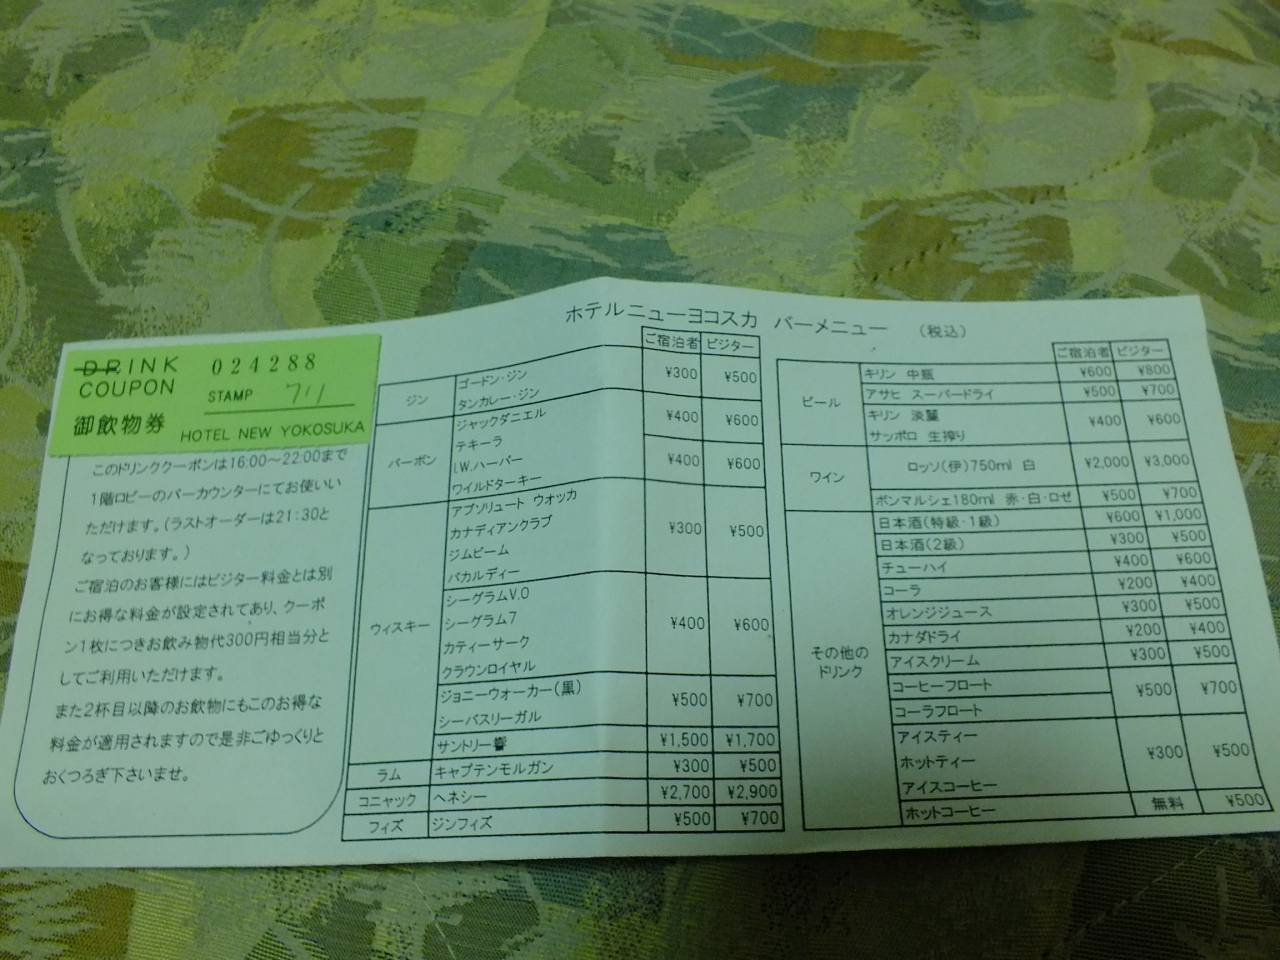 DRINK
COUPON
御飲物券
024288
STAMP
HOTEL NEW YOKOSUKA
このドリンククーポンは16:00~22:00まで
1階ロビーのバーカウンターにてお使いい
ただけます。(ラストオーダーは21:30と
なっております。)
ご宿泊のお客様にはビジター料金とは別
にお得な料金が設定されてあり、クーポ
ン1枚につきお飲み物代300円相当分と
してご利用いただけます。
また2杯目以降のお飲物にもこのお得な
料金が適用されますので是非ごゆっくりと
おくつろぎ下さいませ。
ホテルニューヨコスカ バーメニュー (税込)
ご宿泊者 ビジター
ジン
ゴードン・ジン
タンカレー・ジン
¥300 ¥500
バーボン
ジャックダニエル
テキーラ
¥400 ¥600
I.W.ハーパー
ワイルドターキー
¥400 ¥600
ウィスキー
アブソリュート ウォッカ
カナディアンクラブ
ジムビーム
バカルディー
¥300 ¥500
シーグラムV.O
シーグラム7
カティーサーク
クラウンロイヤル
¥400 ¥600
ジョニーウォーカー(黒)
シーバスリーガル
¥500 ¥700
サントリー響 ¥1,500 ¥1,700
ラム キャプテンモルガン ¥300 ¥500
コニャック ヘネシー ¥2,700 ¥2,900
フィズ ジンフィズ ¥500 ¥700
ご宿泊者 ビジター
ビール
キリン 中瓶 ¥600 ¥800
アサヒ スーパードライ ¥500 ¥700
キリン 淡麗
サッポロ 生搾り
¥400 ¥600
ワイン
ロッソ(伊)750ml 白 ¥2,000 ¥3,000
ボンマルシェ180ml 赤・白・ロゼ ¥500 ¥700
その他の
ドリンク
日本酒(特級・1級) ¥600 ¥1,000
日本酒(2級) ¥300 ¥500
チューハイ ¥400 ¥600
コーラ ¥200 ¥400
オレンジジュース ¥300 ¥500
カナダドライ ¥200 ¥400
アイスクリーム ¥300 ¥500
コーヒーフロート
コーラフロート
¥500 ¥700
アイスティー
ホットティー
アイスコーヒー
¥300 ¥500
ホットコーヒー 無料 ¥500